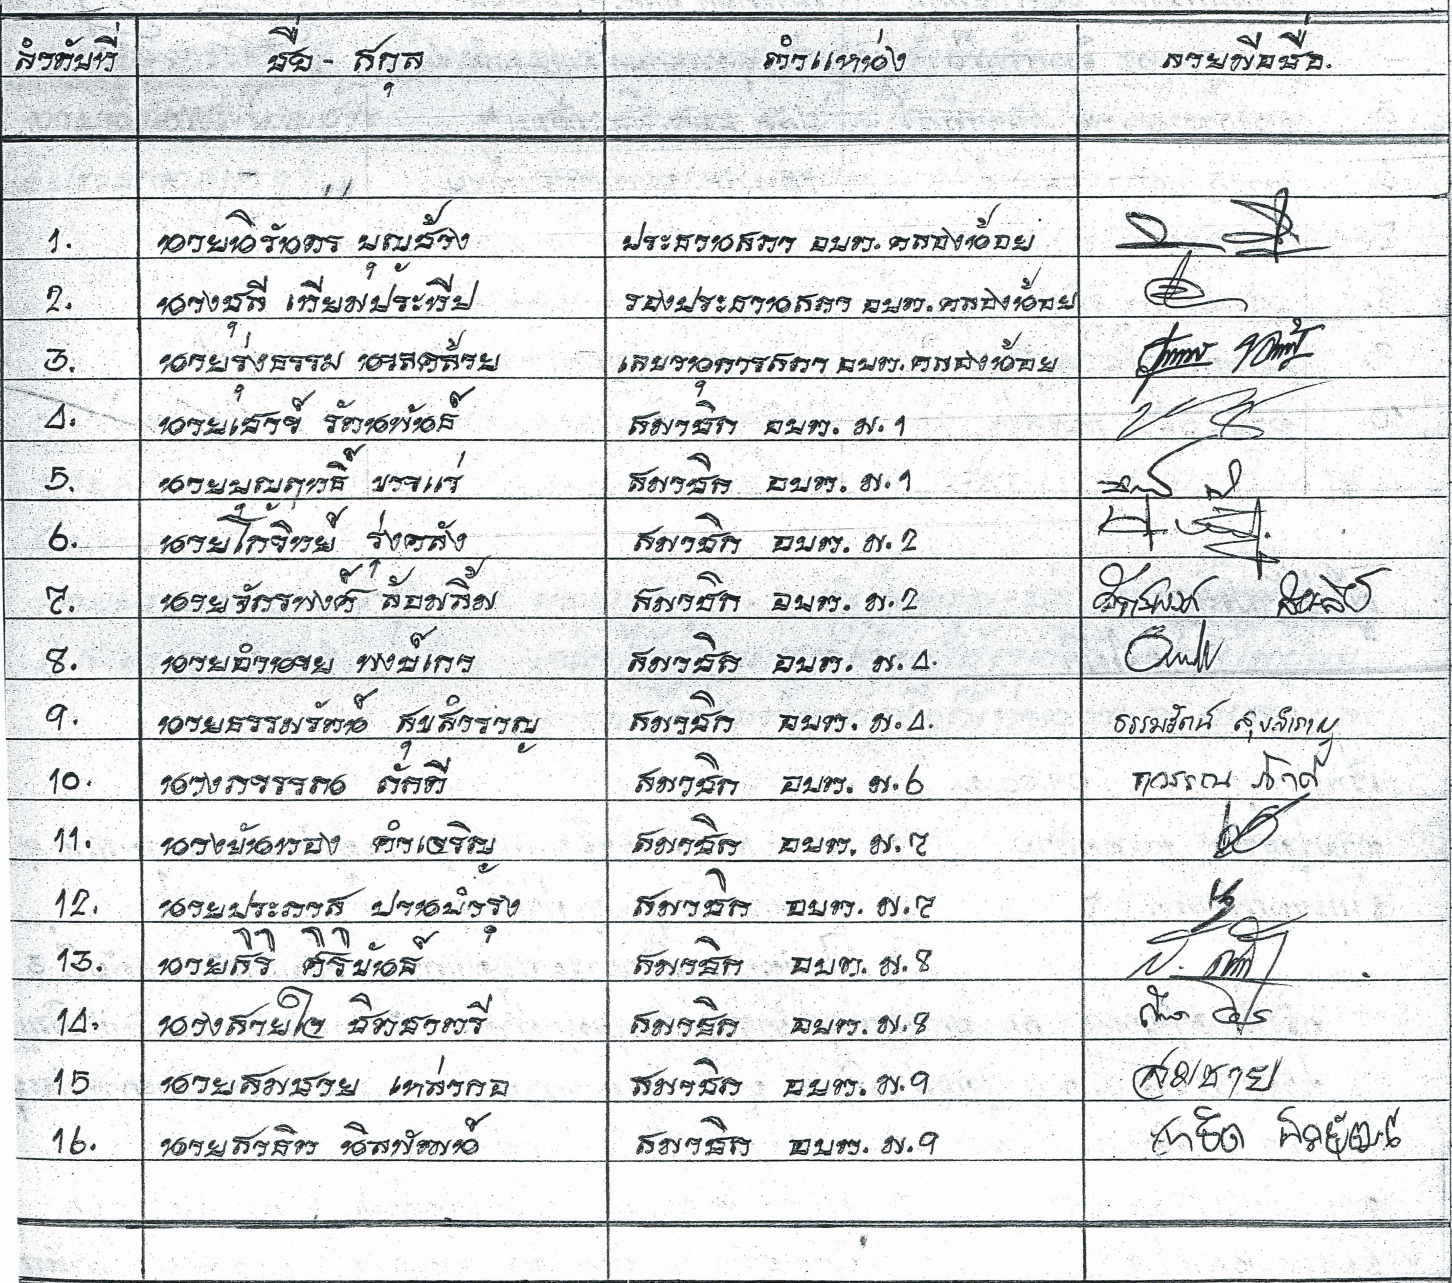 ลำดับที่ ชื่อ - สกุล ตำแหน่ง ลายมือชื่อ.
1. นายนิรันดร บุญช่วง ประธานสภา อบต. คลองน้อย
2. นางชุลี เทียมประทีป รองประธานสภา อบต. คลองน้อย
3. นายรุ่งธรรม นวลคล้าย เลขานุการสภา อบต. คลองน้อย
4. นายเสาว์ รัตนพันธ์ สมาชิก อบต. ม. 1
5. นายบุญฤทธิ์ ขาวแก้ว สมาชิก อบต. ม. 1
6. นายโกวิทย์ รุ่งคลัง สมาชิก อบต. ม. 2
7. นายจักรพงศ์ ล้อมลิ้ม สมาชิก อบต. ม. 2
8. นายอำนวย พงษ์แก้ว สมาชิก อบต. ม. 4.
9. นายธรรมรัตน์ สุขสำราญ สมาชิก อบต. ม. 4. ธรรมรัตน์ สุขสำราญ
10. นางภาวรรณ ภักดี สมาชิก อบต. ม. 6
11. นางบัวทอง ดำเจริญ สมาชิก อบต. ม. 7
12. นายประภาส ปานบำรุง สมาชิก อบต. ม. 7
13. นายสิริ ศิริขันธ์ สมาชิก อบต. ม. 8
14. นางสายใจ ชิตชาตรี สมาชิก อบต. ม. 8
15 นายสมชาย เหล่ากอ สมาชิก อบต. ม. 9 สมชาย
16. นายสาธิต นิลพัฒน์ สมาชิก อบต. ม. 9 สาธิต